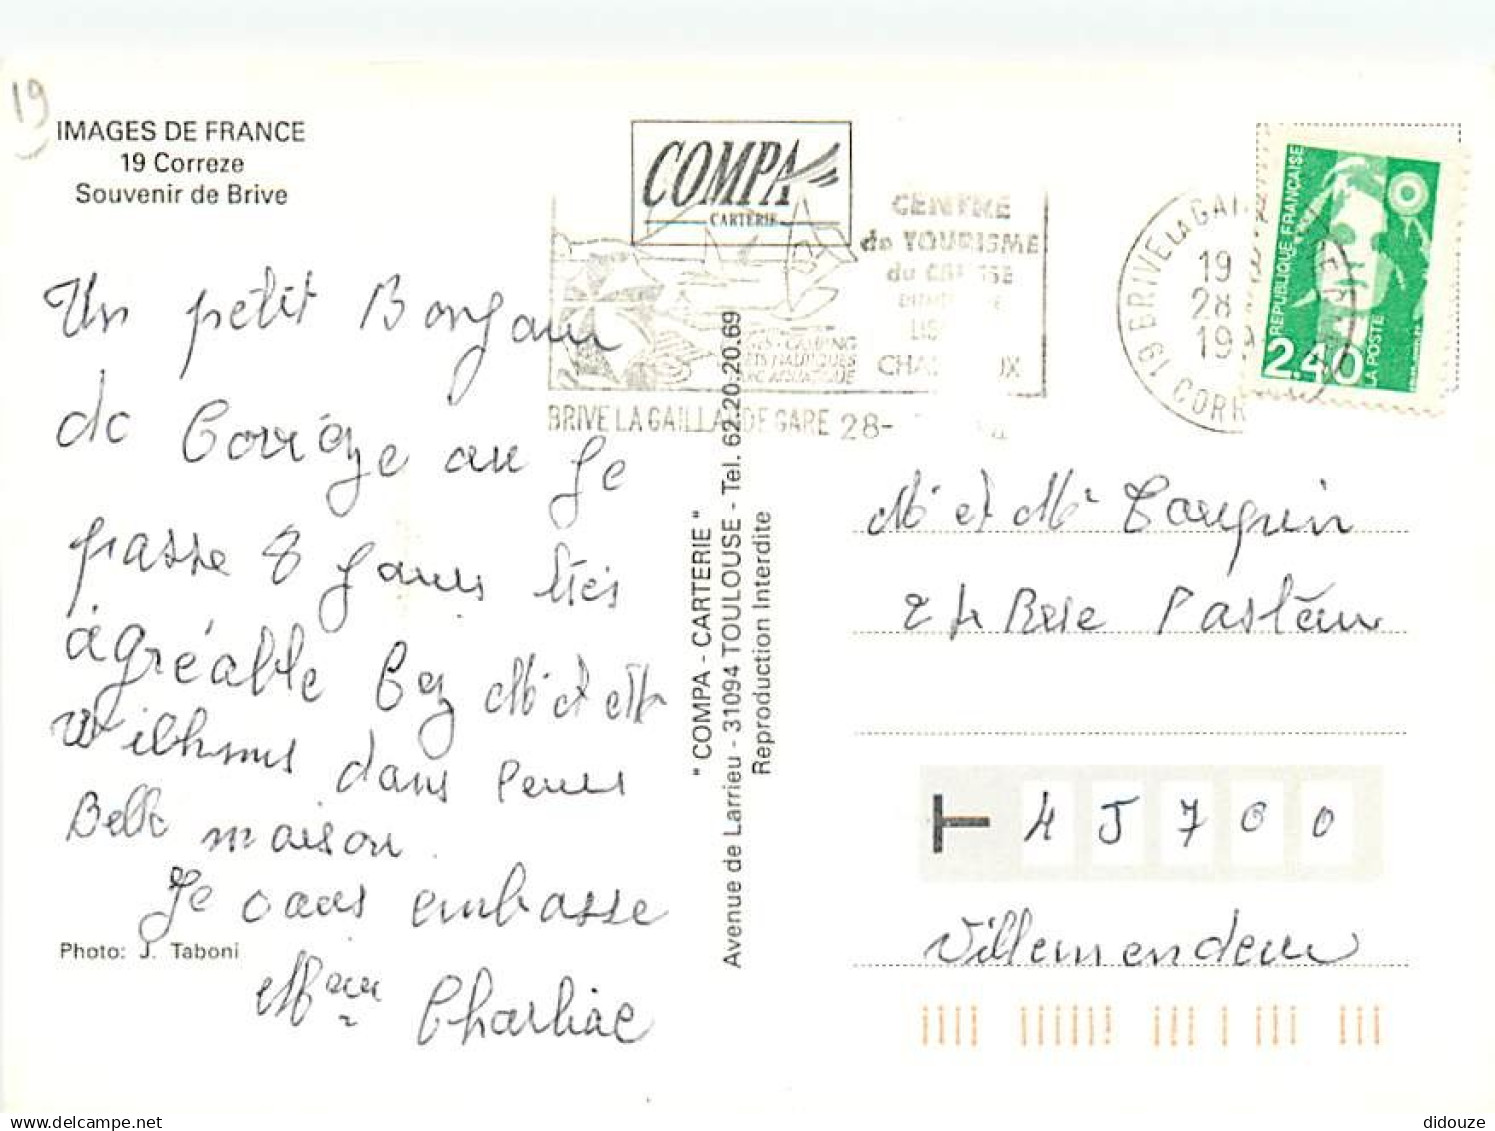 19
IMAGES DE FRANCE
19 Correze
Souvenir de Brive
COMPA
CARTERIE
CENTRE
de TOURISME
du
BRIVE LA GAILLARDE GARE 28-
19 BRIVE LA GAI
19
28
19
CORR
REPUBLIQUE FRANÇAISE
2.40
LA POSTE
Un petit Bonjour
de Corréze au Je
passe 8 Jours trés
agréable Cez Mr et Mm
dans leurs
Belle maison.
Je vous embasse
Mme Charliac
Photo: J. Taboni
" COMPA - CARTERIE "
Avenue de Larrieu - 31094 TOULOUSE - Tel. 62.20.20.69
Reproduction Interdite
Mr et Mm
24 Rue Pasteur
45700
Villemendeur
didouze